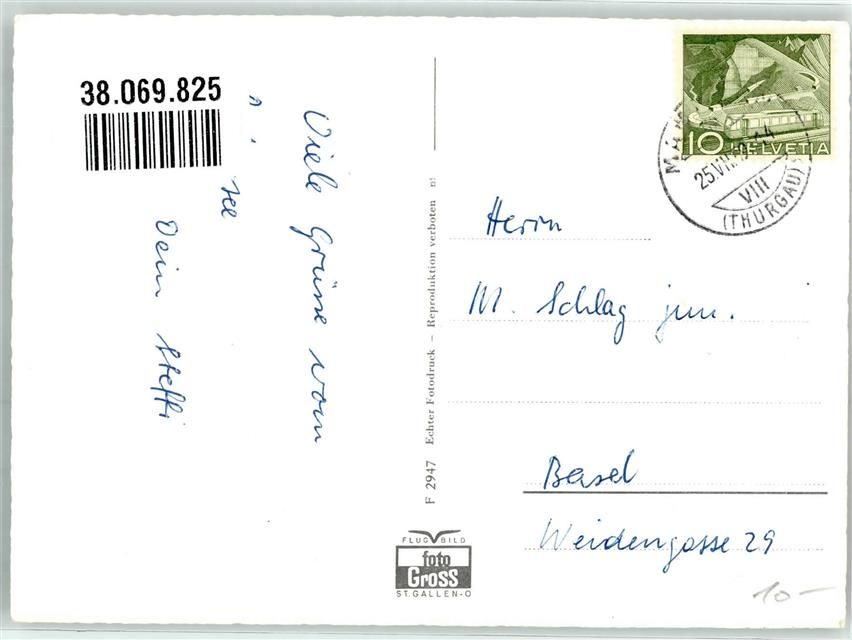 38.069.825
Viele Grüsse vom
see
Dein Steffi
F 2947 Echter Fotodruck – Reproduktion verboten
FLUG BILD
foto
Gross
ST. GALLEN-O
10 HELVETIA
25.VII
VIII
(THURGAU)
Herrn
M. Schlag jun.
Basel
Weidengasse 29
10-